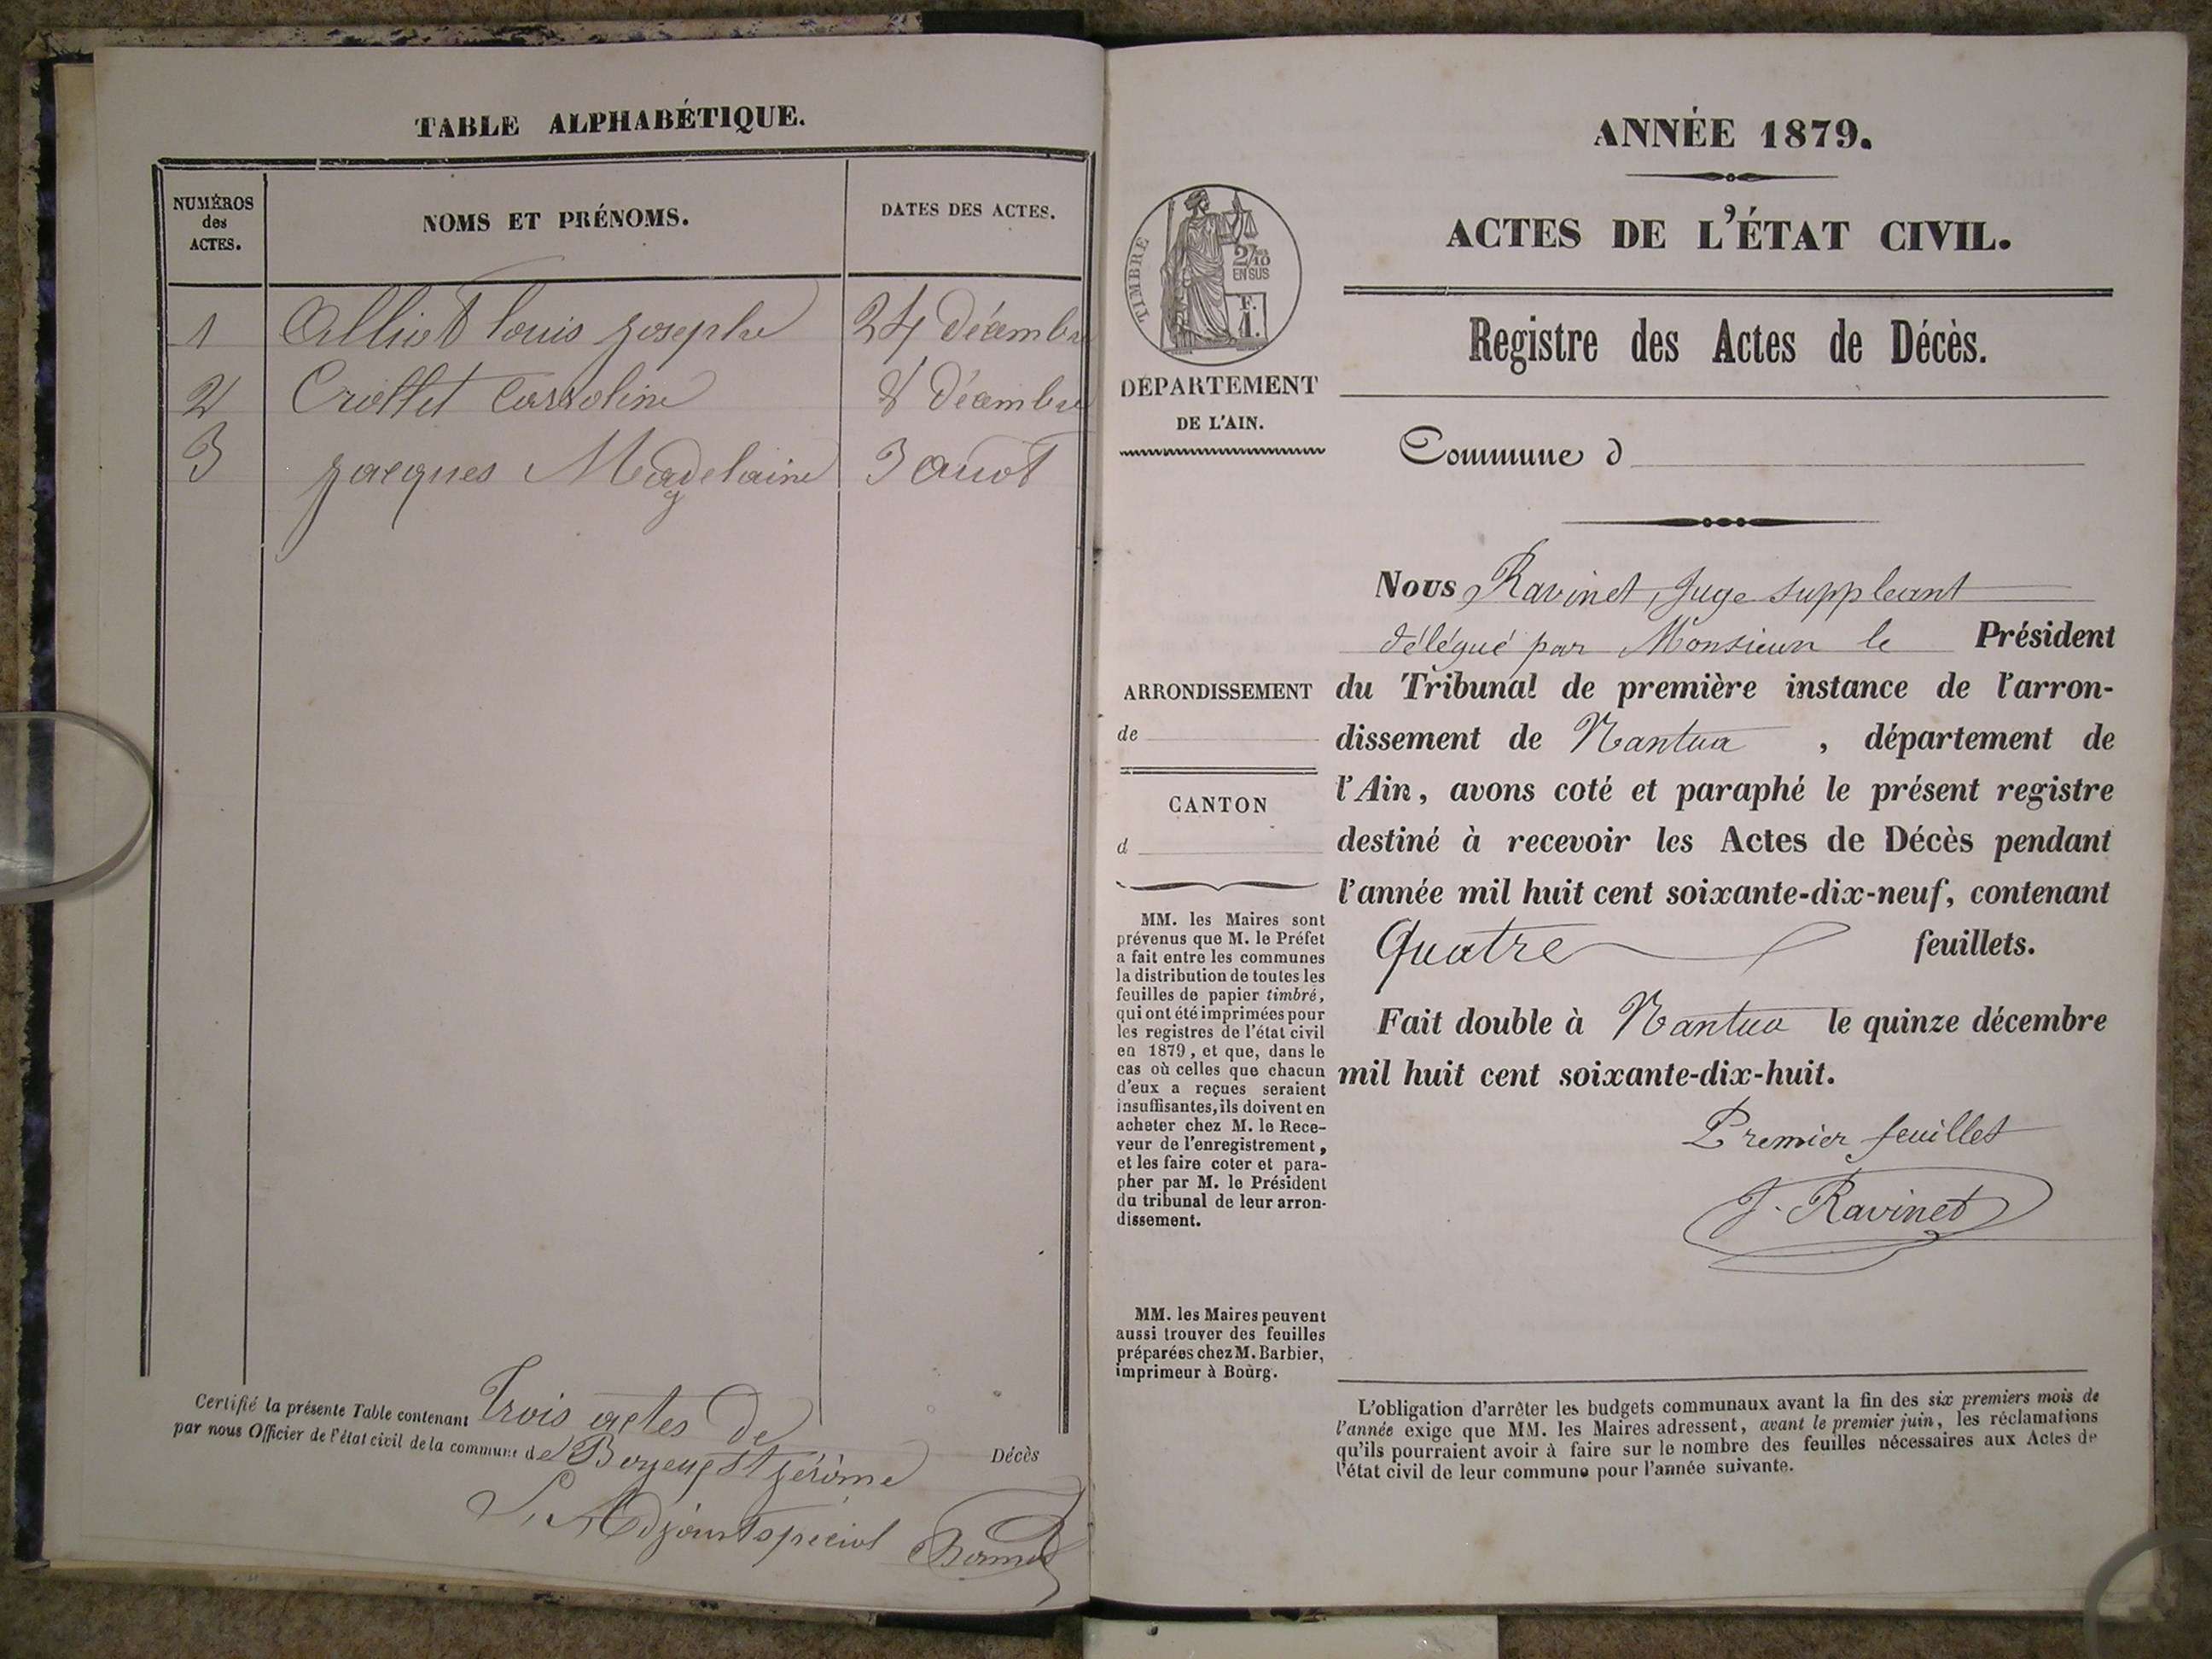 TABLE ALPHABÉTIQUE.
NUMÉROS
des
ACTES.
NOMS ET PRÉNOMS.
DATES DES ACTES.
1 Alliot louis josephe 24 décembre
2 Crollet Carroline 8 décembre
3 jacques Magdelaine 3 auot
Certifié la présente Table contenant Trois actes de
Décès
par nous Officier de l'état civil de la commune de St jérôme
L'Adjoint spécial
ANNÉE 1879.
ACTES DE L'ÉTAT CIVIL.
TIMBRE
2/10
EN SUS
F.
1.
DÉPARTEMENT
DE L'AIN.
Registre des Actes de Décès.
Commune d
Nous Ravinet, Juge suppleant
délégué par Monsieur le Président
ARRONDISSEMENT
de
du Tribunal de première instance de l'arron-
dissement de Nantua , département de
l'Ain, avons coté et paraphé le présent registre
CANTON
d
destiné à recevoir les Actes de Décès pendant
l'année mil huit cent soixante-dix-neuf, contenant
Quatre feuillets.
Fait double à Nantua le quinze décembre
mil huit cent soixante-dix-huit.
Premier feuillet
J. Ravinet
MM. les Maires sont
prévenus que M. le Préfet
a fait entre les communes
la distribution de toutes les
feuilles de papier timbré,
qui ont été imprimées pour
les registres de l'état civil
en 1879, et que, dans le
cas où celles que chacun
d'eux a reçues seraient
insuffisantes, ils doivent en
acheter chez M. le Rece-
veur de l'enregistrement,
et les faire coter et para-
pher par M. le Président
du tribunal de leur arron-
dissement.
MM. les Maires peuvent
aussi trouver des feuilles
préparées chez M. Barbier,
imprimeur à Bourg.
L'obligation d'arrêter les budgets communaux avant la fin des six premiers mois de
l'année exige que MM. les Maires adressent, avant le premier juin, les réclamations
qu'ils pourraient avoir à faire sur le nombre des feuilles nécessaires aux Actes de
l'état civil de leur commune pour l'année suivante.